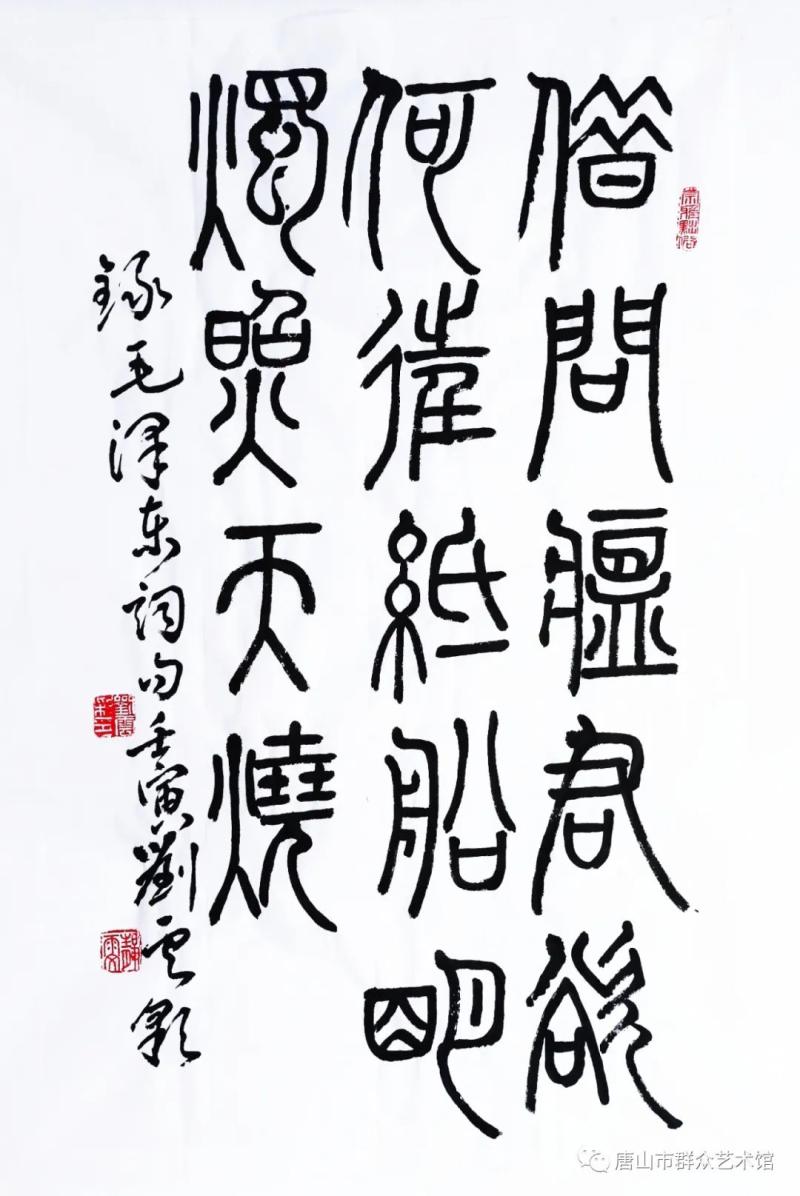 借問瘟君欲
何往紙船明
燭照天燒
錄毛泽东词句壬寅劉云
崇雅黜俗
唐山市群众艺术馆